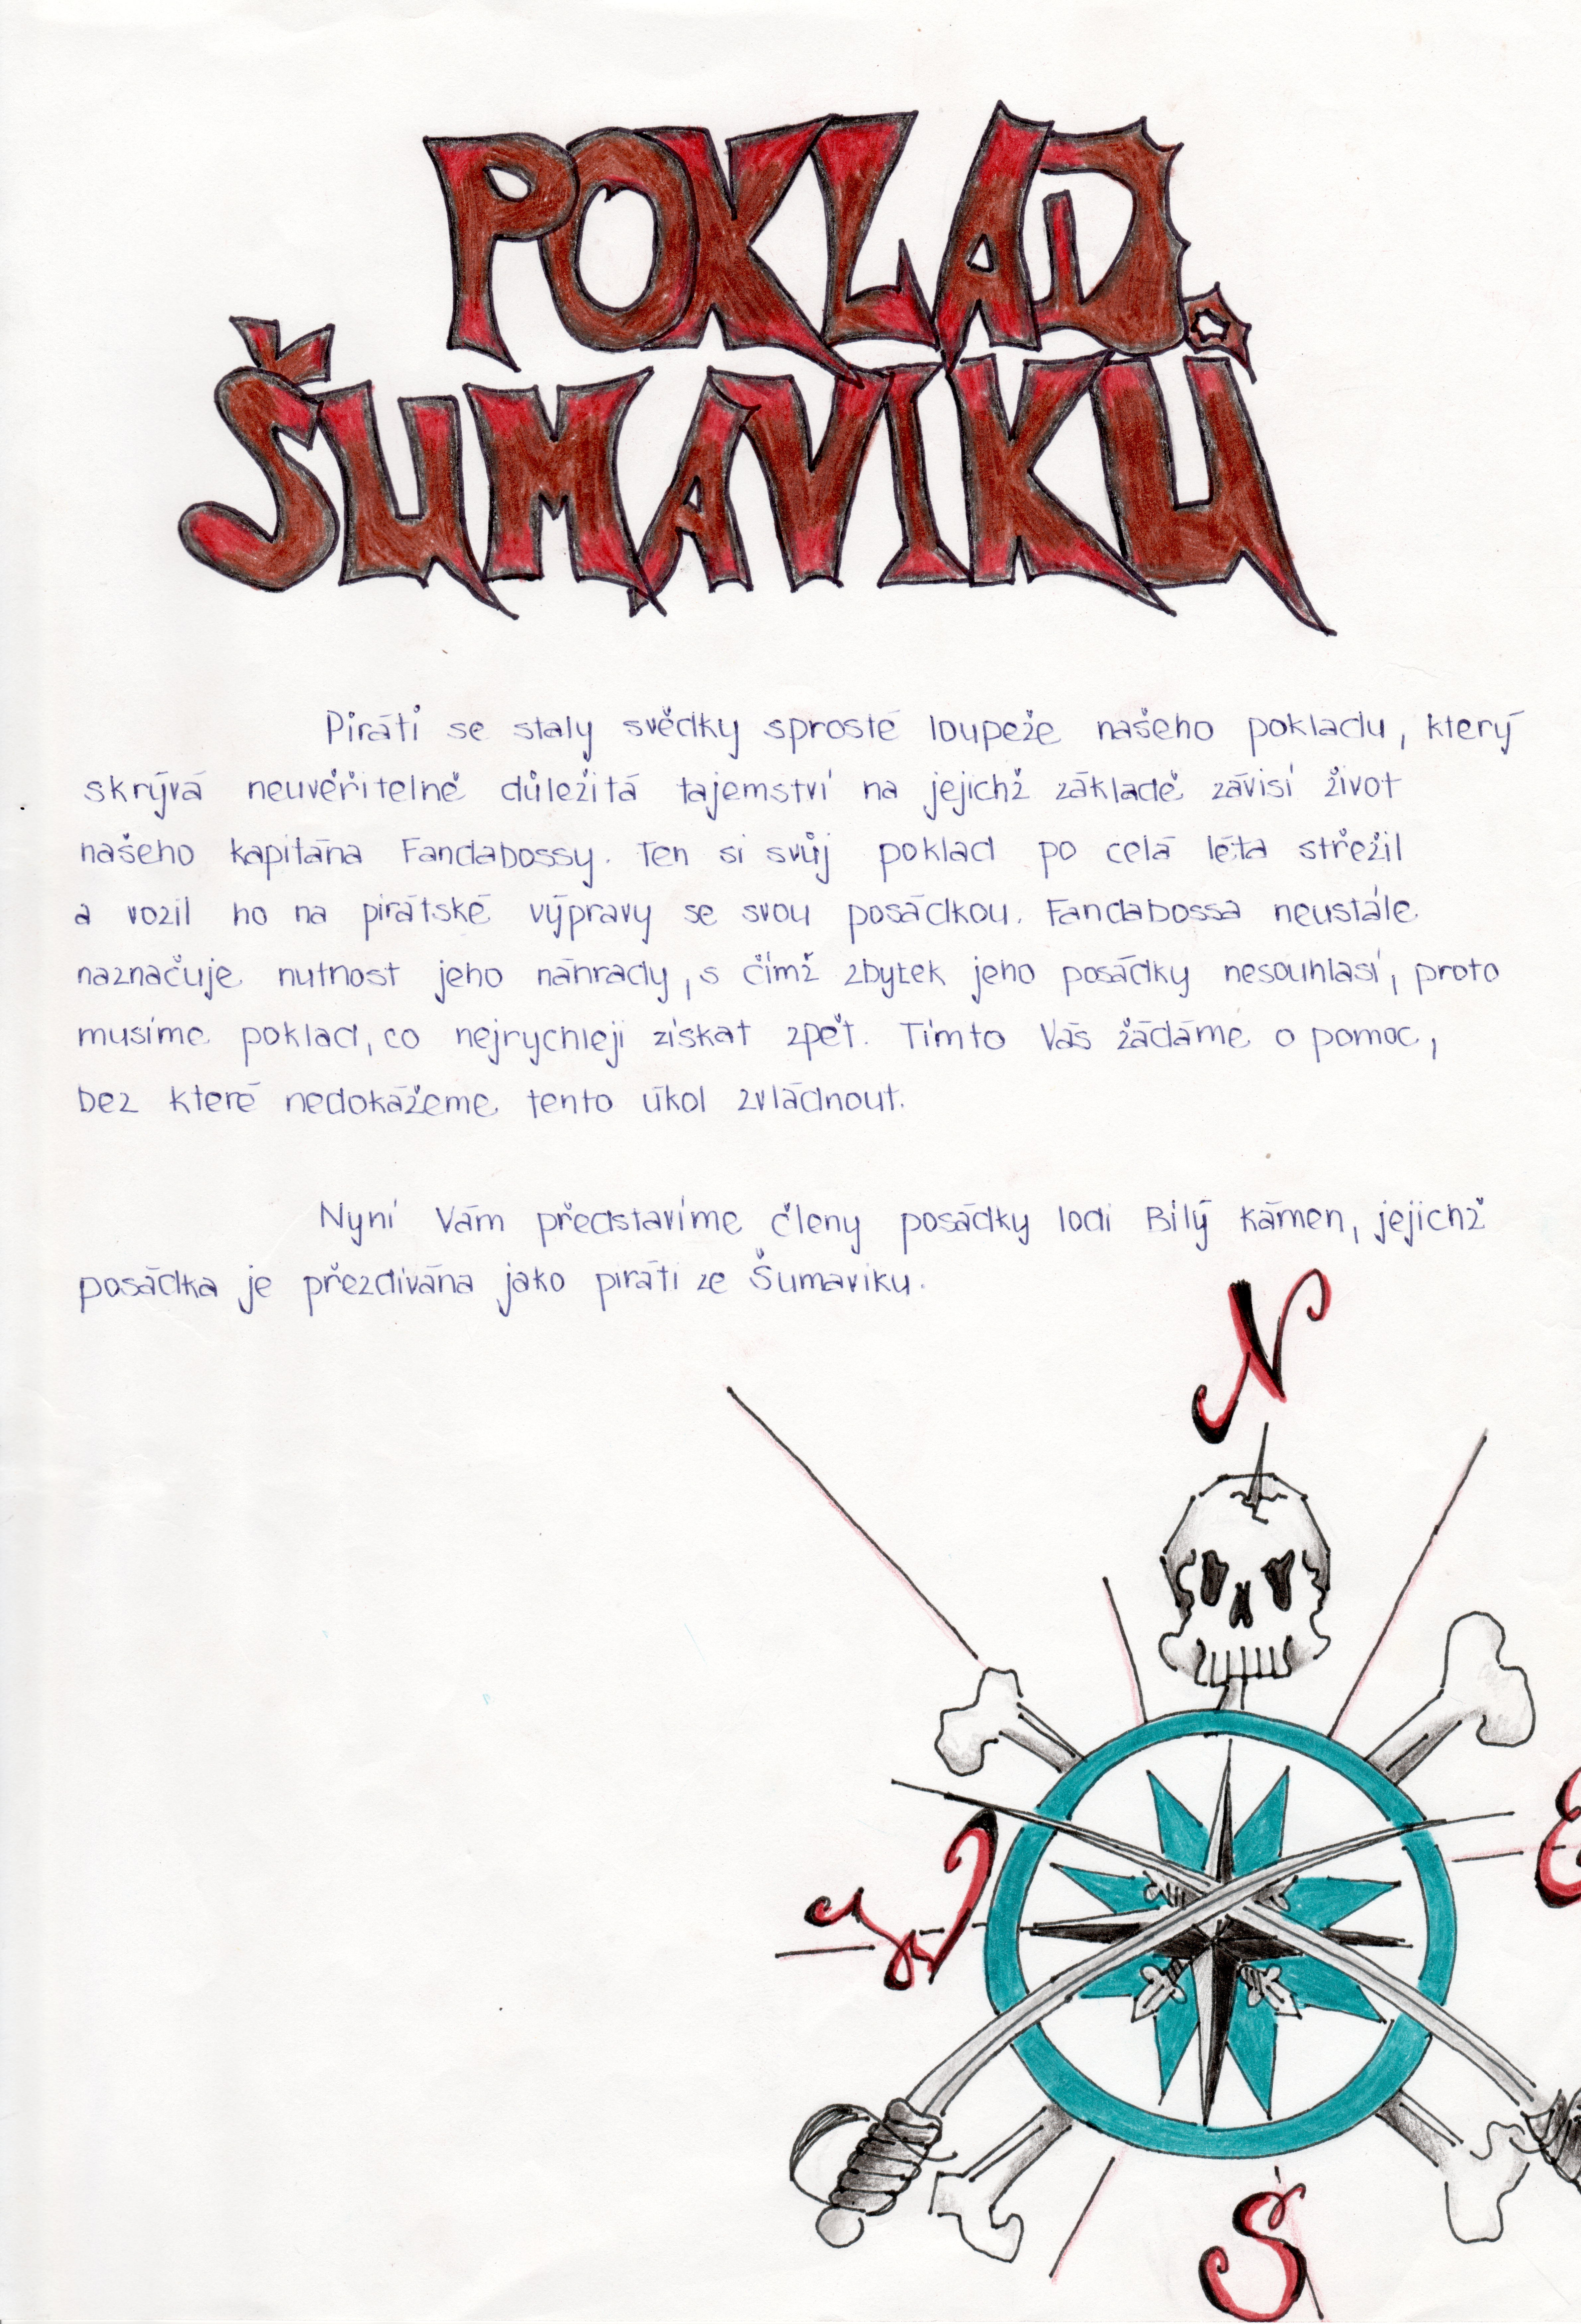 POKLAD
ŠUMAVIKŮ
Piráti se staly svědky sprosté loupeže našeho pokladu, který
skrývá neuvěřitelně důležitá tajemství na jejichž základě závisí život
našeho kapitána Fandabossy. Ten si svůj poklad po celá léta střežil
a vozil ho na pirátské výpravy se svou posádkou. Fandabossa neustále
naznačuje nutnost jeho náhrady, s čímž zbytek jeho posádky nesouhlasí, proto
musíme poklad, co nejrychleji získat zpět. Tímto Vás žádáme o pomoc,
bez které nedokážeme tento úkol zvládnout.
Nyní Vám představíme členy posádky lodi Bílý kámen, jejichž
posádka je přezdívána jako piráti ze Šumaviku.
N
W
E
S